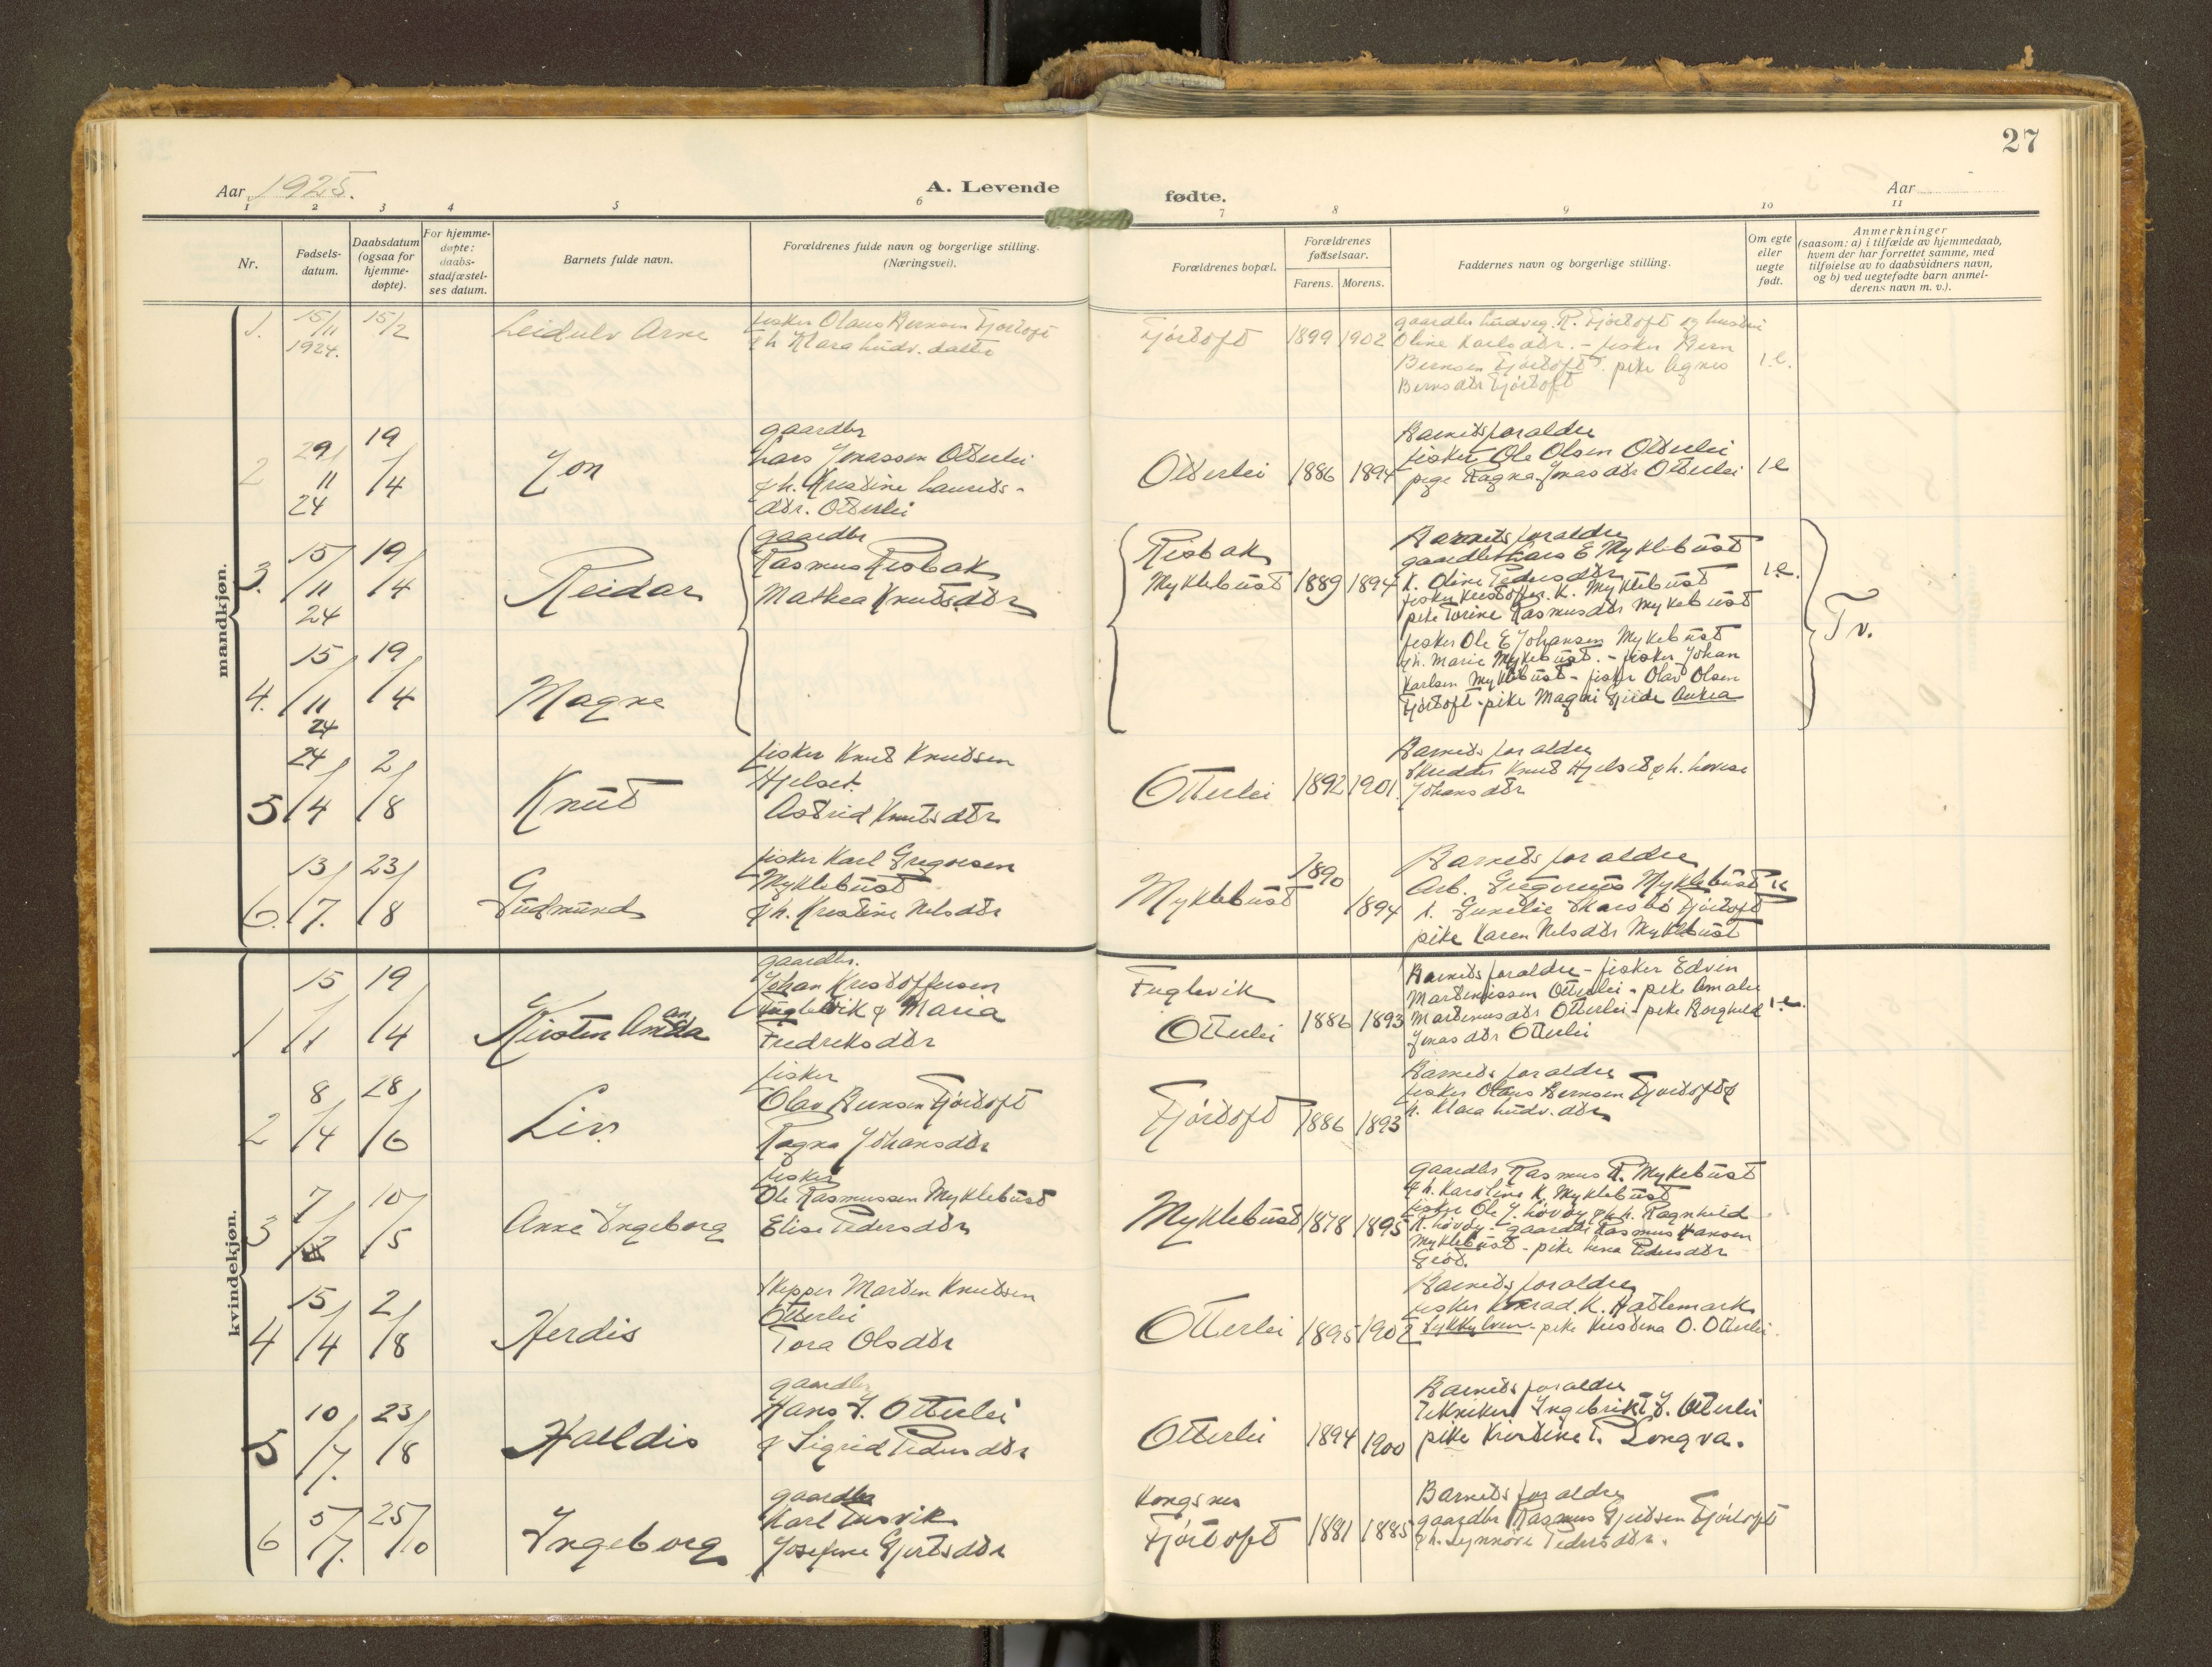 27
Aar 1925.
A. Levende
fødte.
Aar
1 2 3 4 5 6 7 8 9 10 11
Nr.
Fødsels-
datum.
Daabsdatum
(ogsaa for
hjemme-
døpte).
For hjemme-
døpte:
daabs-
stadfæstel-
ses datum.
Barnets fulde navn.
Forældrenes fulde navn og borgerlige stilling.
(Næringsvei).
Forældrenes bopæl.
Forældrenes
fødselsaar.
Farens. Morens.
Faddernes navn og borgerlige stilling.
Om egte
eller
uegte
født.
Anmerkninger
(saasom: a) i tilfælde av hjemmedaab,
hvem der har forrettet samme, med
tilføielse av to daabsvidners navn,
og b) ved uegtefødte barn anmel-
derens navn m. v.).
mandkjøn.
1. 15/11 1924. 15/2
Leidulv Arne
fisker Olaus Bernsen Fjørtoft
& h Klara Ludv. datter
Fjørtoft 1899 1902
gaardbr Ludvig R. Fjørtoft og hustru
Oline Karlsdtr. - fisker Bern
Bernsen Fjørtoft. pike Agnes
Bernsdtr Fjørtoft
1.e.
2 29/11 24 19/4
Jon
gaardbr
Lars Jonassen Otterlei
& h. Kristine Laurits-
dtr. Otterlei
Otterlei 1886 1894
Barnets foraldre
fisker Ole Olsen Otterlei
pige Ragna Jonasdtr Otterlei
1 e
3. 15/11 24 19/4
Reidar
gaardbr
Rasmus Risbak
Mathea Knutsdtr
Risbak
Myklebust 1889 1894
Barnets foraldre
gaardbr Lars E Myklebust
K. Oline Pedersdtr
fisker Kristoffer. K. Myklebust
pike Torine Rasmusdtr Myklebust
1.e.
Tv.
4. 15/11 24 19/4
Magne
fisker Ole E Johansen Myklebust
& h. Marie Myklebust. - fisker Johan
Karlsen Myklebust - fisker Olav Olsen
Fjørtoft - pike Magni Gjerde Aukra
5 24/4 2/8
Knut
fisker Knut Knutsen
Hjelset
Astrid Knutsdtr
Otterlei 1892 1901.
Barnets foraldre
Skredder Knut Hjelset & h. Lovise
Johansdtr
6. 13/7. 23/8
Gudmund
fisker Karl Gregorsen
Myklebust
& h. Kristine Nelsdtr
Myklebust 1890 1894
Barnets foraldre
Arb. Gregorius Myklebust
Skarsbø Fjørtoft
pike Karen Nelsdtr Myklebust
kvindekjøn.
1 15/1 19/4
Kirsten Amanda
gaardbr.
Johan Kristoffersen
Fuglevik & Maria
Fredriksdtr
Fuglevik
Otterlei 1886 1893
Barnets foraldre - fisker Edvin
Martinussen Otterlei - pike Amalie
Martinusdtr Otterlei - pike Borghild
Jonasdtr Otterlei
1.e.
2 8/4 28/6
Liv.
fisker
Olav Bernsen Fjørtoft
Ragna Johansdtr
Fjørtoft 1886 1893
Barnets foraldre
fisker Olaus Bernsen Fjørtoft &
h. Klara Ludv. dtr
3 7/2 10/5
Anne Ingeborg
fisker
Ole Rasmussen Myklebust
Elise Pedersdtr
Myklebust 1878 1895
gaardbr Rasmus R. Myklebust
& h. Karoline K. Myklebust
fisker Ole J. Løvøy & h. Ragnhild
R. Løvøy - gaardbr Rasmus Hansen
Myklebust - pike Lena Pedersdtr
4 15/4 2/8
Herdis
Skipper Marten Knutsen
Otterlei
Tora Olsdtr
Otterlei 1895 1902
Barnets foraldre
fisker Konrad. K. Hatlemark
Sykkylven - pike Kristina O. Otterlei.
5 10/7. 23/8
Halldis
gaardbr
Hans J. Otterlei
& Sigrid Pedersdtr
Otterlei 1894 1900
Barnets foraldre
Tekniker Ingebrikt J. Otterlei
pike Kristine P. Longva.
6 5/7. 25/10
Ingeborg
gaardbr
Karl Tusvik
Josefine Gjertsdtr
Kongsnes
Fjørtoft 1881 1885
Barnets foraldre
gaardbr Rasmus Gjertsen Fjørtoft
& h. Synnøve Pedersdtr.